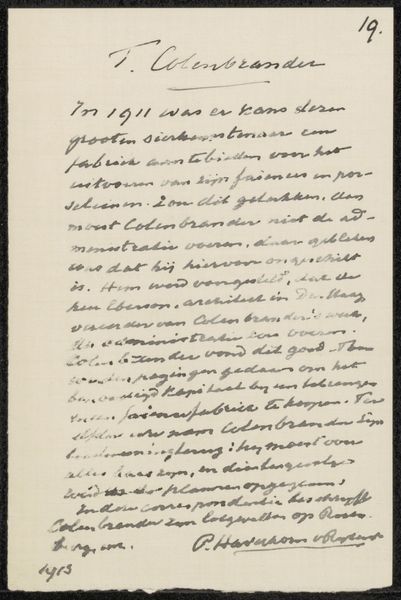 19.
T. Colenbrander
In 1911 was er kans dezen
grooten sierkunstenaar een
fabriek aan te bieden voor het
uitvoeren van zijn faiences en por-
seleinen. Zou dit gelukken, dan
moest Colenbrander niet de ad-
ministratie voeren, daar gebleken
was dat hij hiervoor ongeschikt
is. Hem werd voorgesteld, dat de
heer Eberson, architect in Den Haag
vereerder van Colenbrander's werk,
de administratie zou voeren.
Colenbrander vond dit goed. Toen
werden pogingen gedaan om het
benoodigd kapitaal bij een te brengen
en een faiencefabriek te koopen. Ter
elfder ure nam Colenbrander zijn
: hij moest voor
alles baas zijn, en dientengevolge
werd de plannen opgegeven.
In deze correspondentie beschrijft
Colenbrander zijn op Rozen-
burg
P. Haverkorn v Rijsewijk
1913